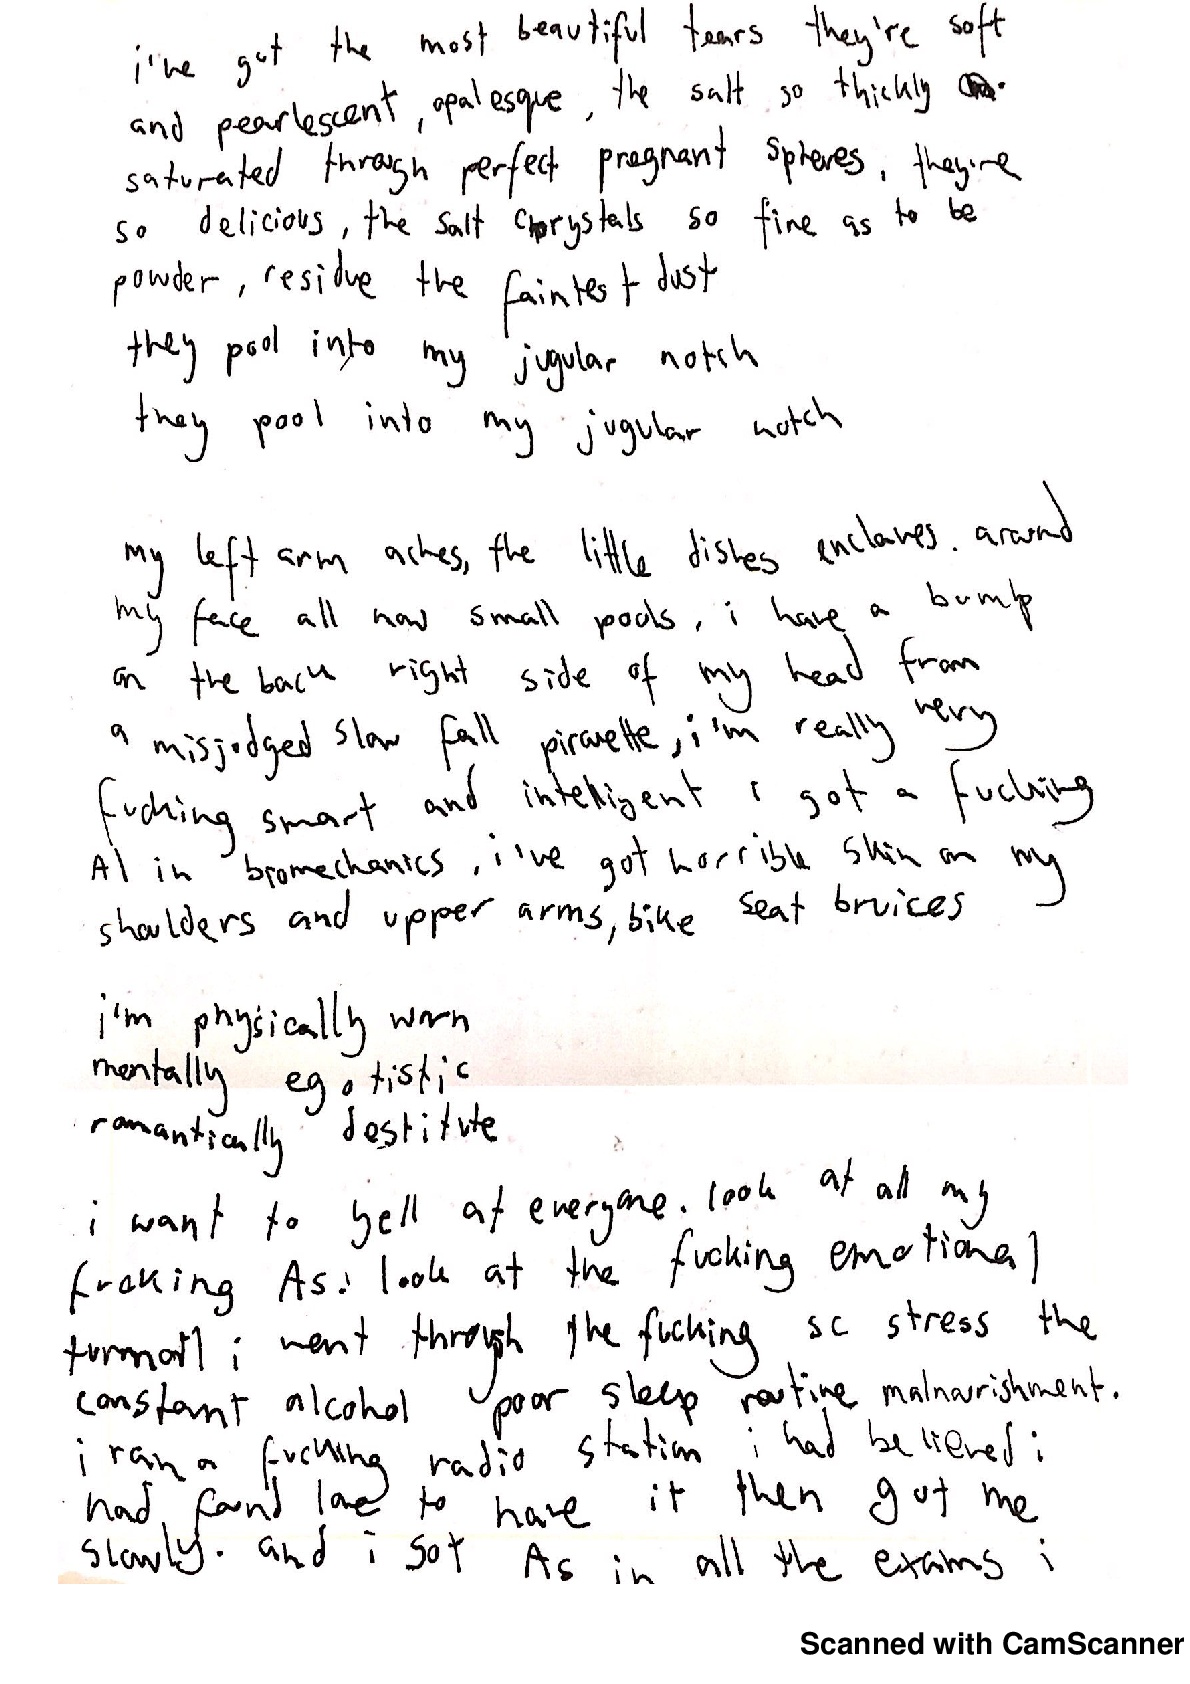 i've got the most beautiful tears they're soft
and pearlescent, opalesque, the salt so thickly
saturated through perfect pregnant spheres, they're
so delicious, the salt crystals so fine as to be
powder, residue the faintest dust
they pool into my jugular notch
they pool into my jugular notch
my left arm aches, the little dishes enclaves. around
my face all now small pools, i have a bump
on the back right side of my head from
a misjudged slow fall pirouette, i'm really very
fucking smart and intelligent i got a fucking
A1 in biomechanics, i've got horrible skin on my
shoulders and upper arms, bike seat bruices
i'm physically worn
mentally egotistic
romantically destitute
i want to yell at everyone. look at all my
fucking As! look at the fucking emotional
turmoil i went through the fucking sc stress the
constant alcohol poor sleep routine malnourishment.
i ran a fucking radio station i had believed i
had found love to have it then gut me
slowly. and i got As in all the exams i
Scanned with CamScanner